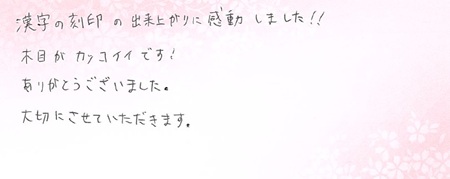 漢字の刻印の出来上がりに感動しました!!
木目がカッコイイです!
ありがとうございました。
大切にさせていただきます。